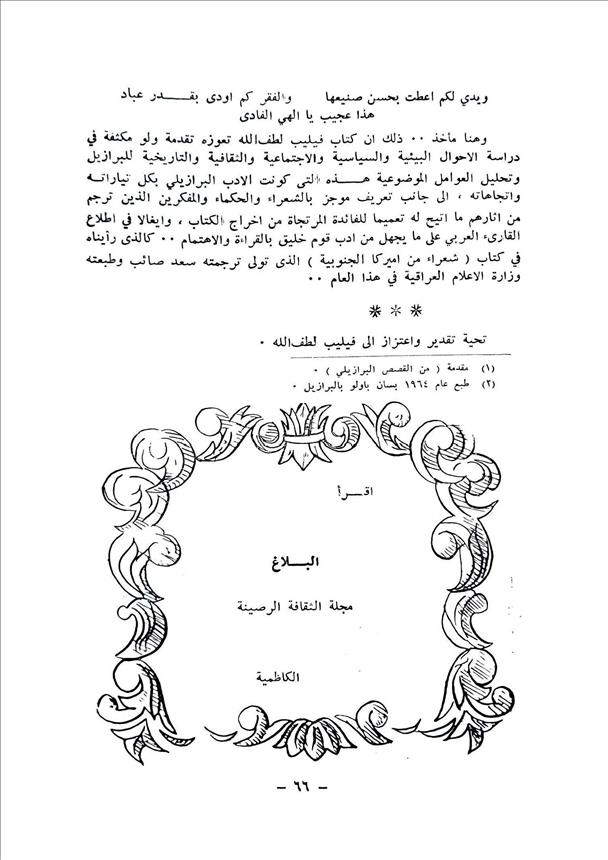 ويدي لكم اعطت بحسن صنيعها والفقر كم اودى بقـــدر عباد
هذا عجيب يا الهي الفادى
وهنا مأخذ ٠٠ ذلك ان كتاب فيليب لطف‌الله تعوزه تقدمة ولو مكثفة في
دراسة الاحوال البيئية والسياسية والاجتماعية والثقافية والتاريخية للبرازيل
وتحليل العوامل الموضوعية هـــذه التى كونت الادب البرازيلي بكل تياراتـه
واتجاهاته ، الى جانب تعريف موجز بالشعراء والحكماء والمفكرين الذين ترجم
من اثارهم ما اتيح له تعميما للفائدة المرتجاة من اخراج الكتاب ، وايغالا في اطلاع
القارىء العربي على ما يجهل من ادب قوم خليق بالقراءة والاهتمام ٠٠ كالذى رأيناه
في كتاب ( شعراء من اميركا الجنوبية ) الذى تولى ترجمته سعد صائب وطبعته
وزارة الاعلام العراقية في هذا العام ٠٠
* * *
تحية تقدير واعتزاز الى فيليب لطف‌الله ٠
(١) مقدمة ( من القصص البرازيلي ) ٠
(٢) طبع عام ١٩٦٤ بسان باولو بالبرازيل ٠
اقـــرأ
البـــلاغ
مجلة الثقافة الرصينة
الكاظمية
– ٦٦ –